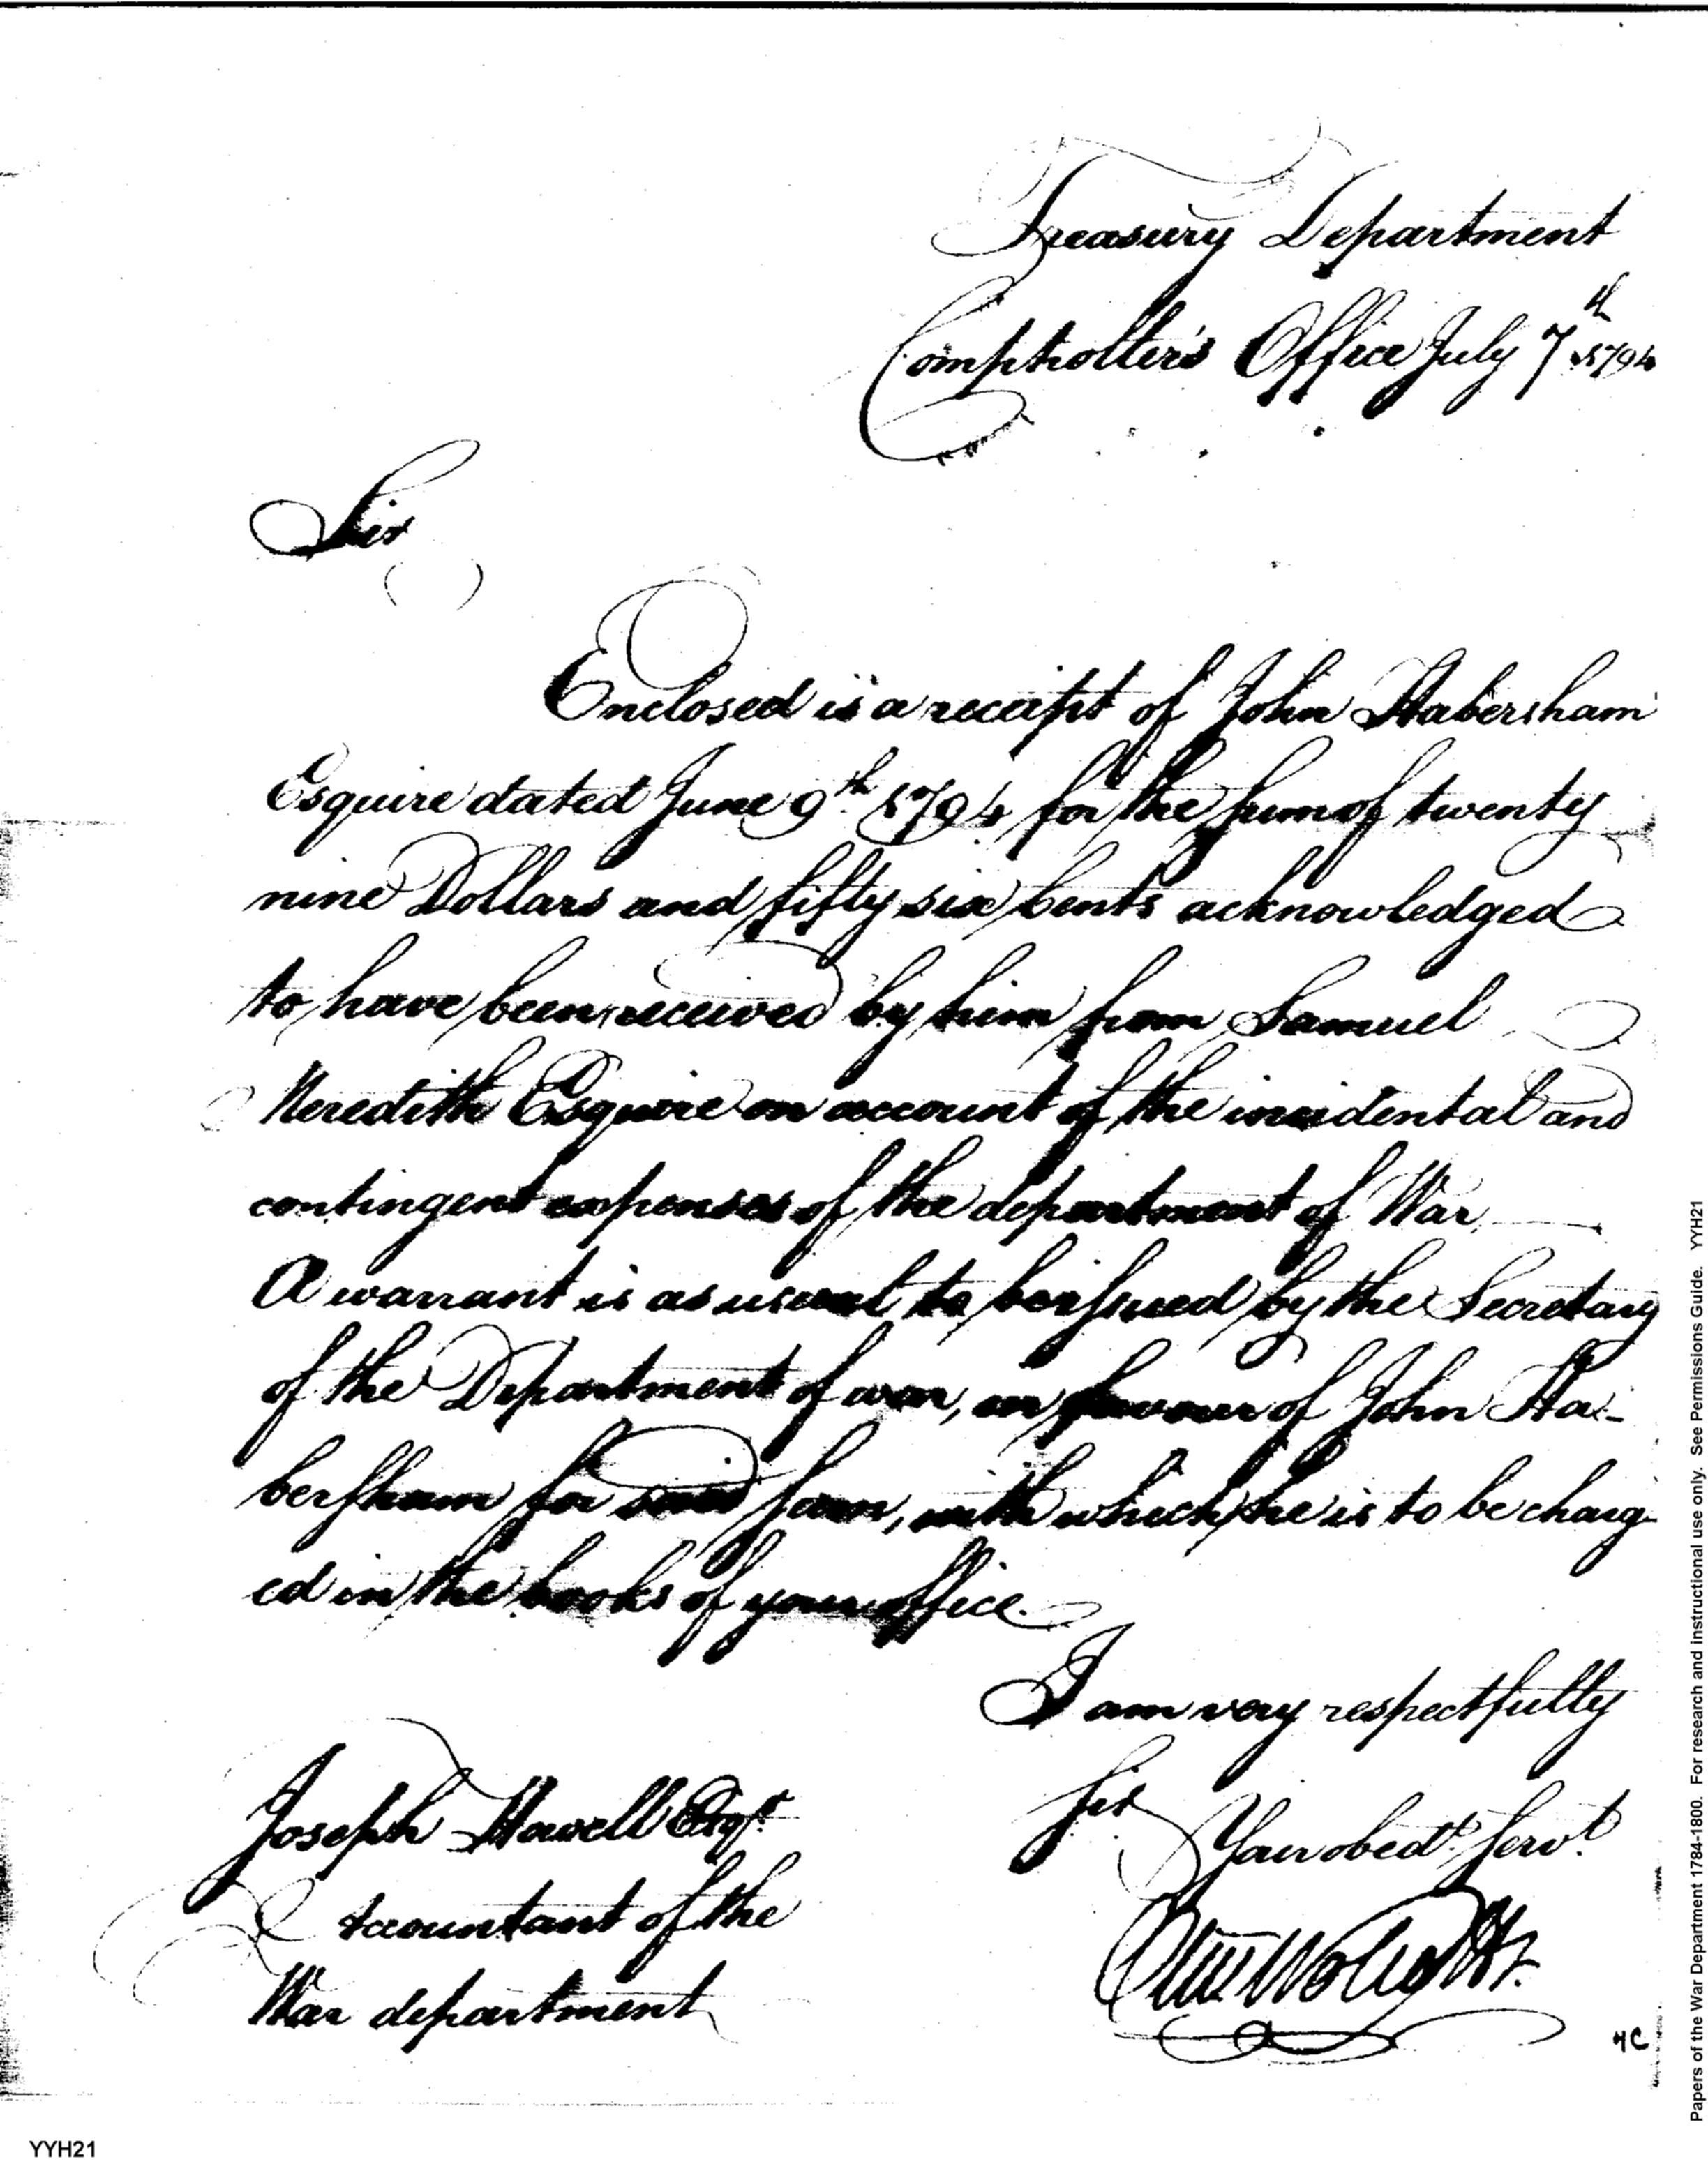 Treasury Department
Comptroller's Office July 7th 1794
Sir
Enclosed is a receipt of John Habersham
Esquire dated June 9th 1794 for the sum of twenty
nine Dollars and fifty six Cents acknowledged
to have been received by him from Samuel
Meredith Esquire on account of the incidental and
contingent expenses of the department of War
A warrant is as usual to be issued by the Secretary
of the Department of war, in favour of John Ha-
bersham for said sum, with which he is to be charg-
ed in the books of your office.
I am very respectfully
Sir
Your obedt. Servt.
Joseph Howell Esqr.
Accountant of the
War department
Oliv Wolcott Jr.
4C
YYH21
Papers of the War Department 1784-1800. For research and instructional use only. See Permissions Guide. YYH21